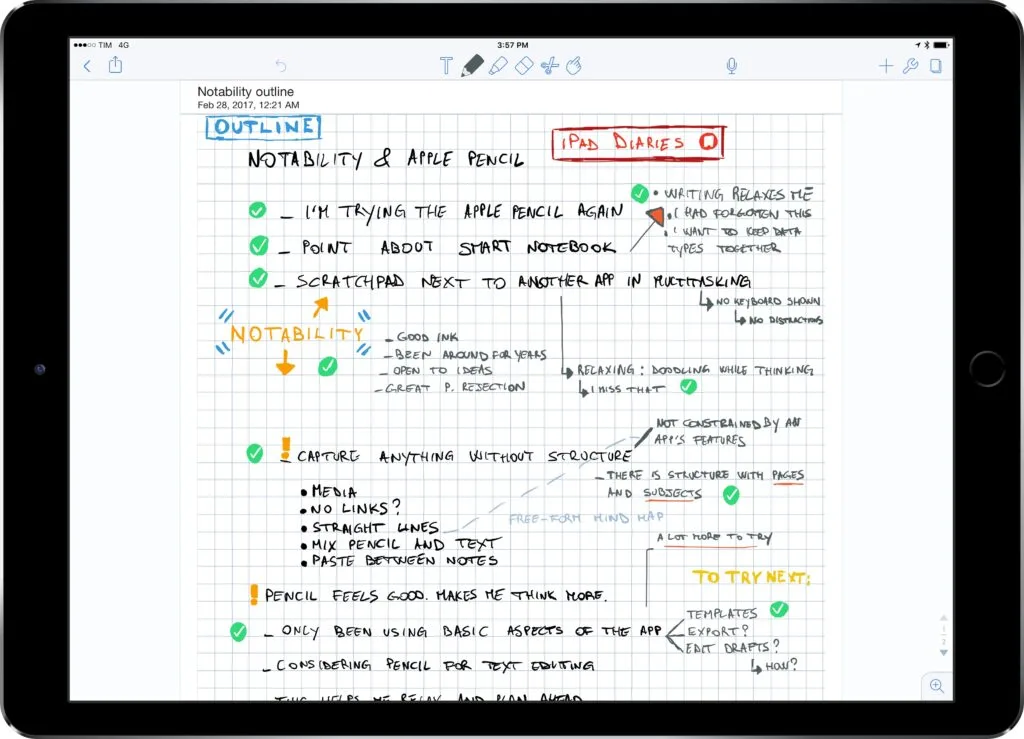 TIM 4G
3:57 PM
Notability outline
Feb 28, 2017, 12:21 AM
OUTLINE
iPAD DIARIES
NOTABILITY & APPLE PENCIL
– I'M TRYING THE APPLE PENCIL AGAIN
• WRITING RELAXES ME
• I HAD FORGOTTEN THIS
• I WANT TO KEEP DATA
TYPES TOGETHER
– POINT ABOUT SMART NOTEBOOK
– SCRATCHPAD NEXT TO ANOTHER APP IN MULTITASKING
NO KEYBOARD SHOWN
NO DISTRACTIONS
NOTABILITY
– GOOD INK
– BEEN AROUND FOR YEARS
– OPEN TO IDEAS
– GREAT P. REJECTION
RELAXING: DOODLING WHILE THINKING
I MISS THAT
! – CAPTURE ANYTHING WITHOUT STRUCTURE
NOT CONSTRAINED BY AN
APP'S FEATURES
– THERE IS STRUCTURE WITH PAGES
AND SUBJECTS
• MEDIA
• NO LINKS?
• STRAIGHT LINES
• MIX PENCIL AND TEXT
• PASTE BETWEEN NOTES
FREE-FORM MIND MAP
A LOT MORE TO TRY
TO TRY NEXT:
! PENCIL FEELS GOOD. MAKES ME THINK MORE.
– ONLY BEEN USING BASIC ASPECTS OF THE APP
TEMPLATES
EXPORT?
EDIT DRAFTS?
HOW?
– CONSIDERING PENCIL FOR TEXT EDITING
– THIS HELPS ME RELAX AND PLAN AHEAD
1
2